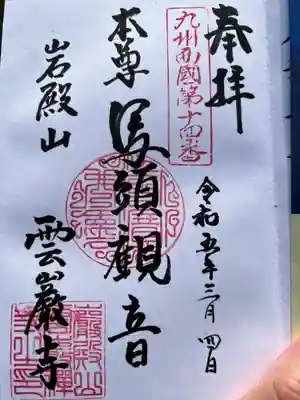 奉拝
九州西國第十四番
令和五年三月四日
本尊 馬頭観音
岩殿山
雲巖寺